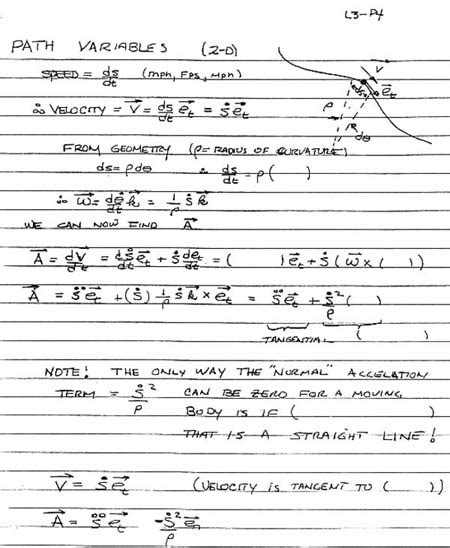 L3-P4
PATH VARIABLES (2-D)
SPEED = ds/dt (mph, FPS, Mph)
∴ VELOCITY = V⃗ = ds/dt e⃗t = ṡ e⃗t
V
ds
e⃗t
ρ
dθ
FROM GEOMETRY (ρ = RADIUS OF CURVATURE)
ds = ρdθ ∴ ds/dt = ρ( )
∴ ω⃗ = dθ/dt k⃗ = 1/ρ ṡ k⃗
WE CAN NOW FIND A⃗
A⃗ = dV⃗/dt = dṡ/dt e⃗t + ṡ de⃗t/dt = ( ) e⃗t + ṡ (ω⃗ x ( ))
A⃗ = s̈ e⃗t + (ṡ) 1/ρ ṡ k⃗ x e⃗t = s̈ e⃗t + ṡ²/ρ ( )
TANGENTIAL ( )
NOTE! THE ONLY WAY THE "NORMAL" ACCELATION
TERM = ṡ²/ρ CAN BE ZERO FOR A MOVING
BODY IS IF ( )
THAT IS A STRAIGHT LINE!
V⃗ = ṡ e⃗t (VELOCITY IS TANGENT TO ( ))
A⃗ = s̈ e⃗t - ṡ²/ρ e⃗n